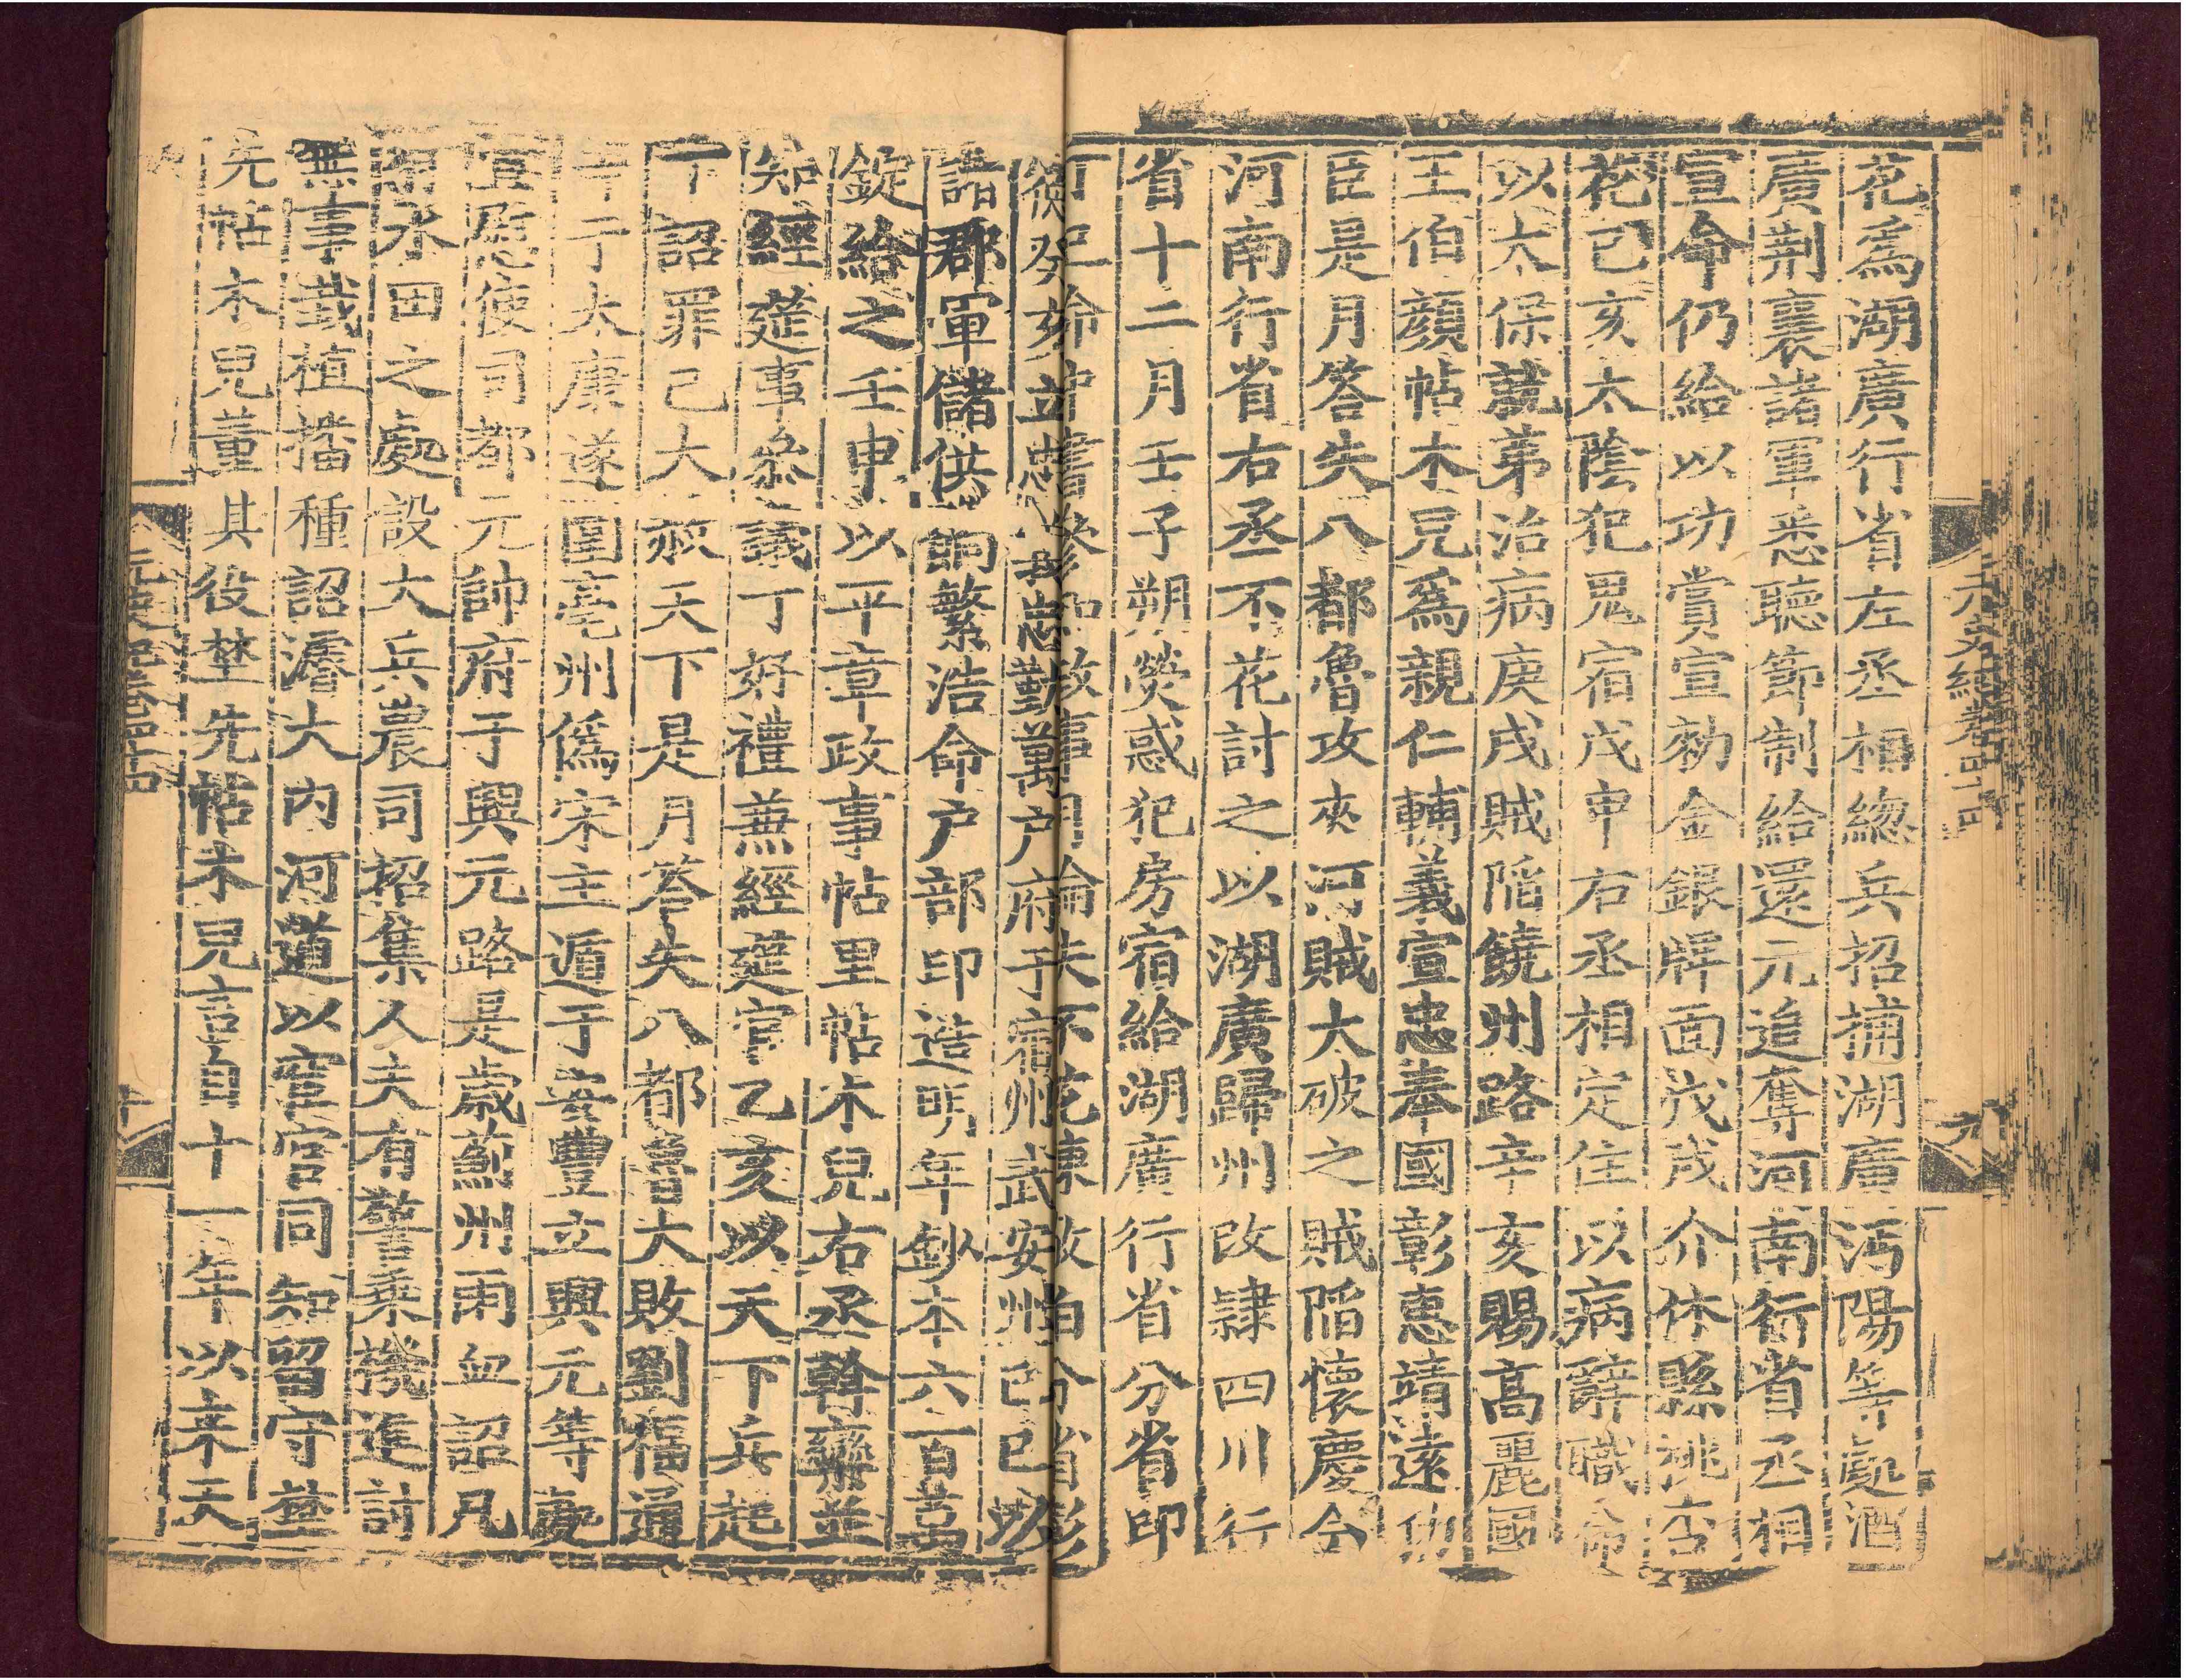 花爲湖廣行省左丞相總兵招捕湖廣沔陽等處酒
廣荆襄諸軍悉聽節制給還元追奪河南行省丞相
宣命仍給以功賞宣勑金銀牌面戊戌介休縣桃杏
花己亥太陰犯鬼宿戊申右丞相定住以病辭職命
以太保就第治病庚戌賊陷饒州路辛亥賜高麗國
王伯顔帖木兒爲親仁輔義宣忠奉國彰惠靖遠功
臣是月答失八都魯攻夾河賊大破之賊陷懷慶命
河南行省右丞不花討之以湖廣歸州改隸四川行
省十二月壬子朔熒惑犯房宿給湖廣行省分省印
忠勤萬户府于宿州武安州己巳以
諸郡軍儲供餉繁浩命户部印造明年鈔本六百萬
錠給之壬申以平章政事帖里帖木兒右丞斡欒並
知經筵事參議丁好禮兼經筵官乙亥以天下兵起
下詔罪己大赦天下是月答失八都魯大敗劉福通
于太康遂圍亳州僞宋主遁于安豐立興元等處
宣慰使司都元帥府于興元路是歲薊州雨血詔凡
水田之處設大兵農司招集人夫有警乘機進討
無事栽植播種詔濬大内河道以宦官同知留守埜
先帖木兒董其役埜先帖木兒言自十一年以来天
元史紀卷四十四
九
十